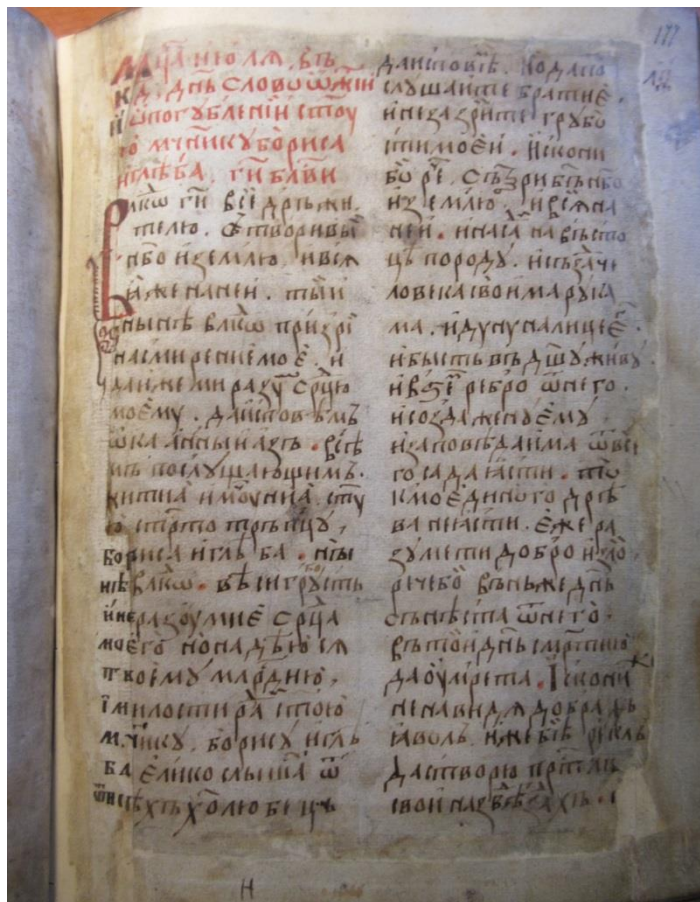 Мцⷭ҇а июлѧ. въ
к҃д. дн҃ь слово ѿ житїи
и ѡ погꙋбленїи ст҃оу
ю мч҃нику бориса
и глѣба. гн҃ бл҃ви
Влⷣкѡ гн҃ все дръжи
телю. сътворивыи
нб҃о и землю. и всѧ
ꙗже на неи. тыи
нынѣ влⷣкѡ призрї
на смирение моє. и
даи же ми разꙋⷨ срⷣцю
моємꙋ. да исповѣмъ
ѡкаꙗнныи азъ. всѣ
мъ послꙋшающимъ.
житиа и мꙋчениа. ст҃ꙋ
ю стрⷭ҇то тръпцꙋ,
бориса и глѣба. нъ ѡ
влⷣкѡ. вѣси грꙋбость
и неразоумиє срⷣца
моего но надѣю сѧ
твоемꙋ млрⷣдию.
ї милости раⷣ ст҃ою
мч҃нкꙋ. борисꙋ и глѣ
ба єлико слышаⷯ ѿ
нѣкыхъ хⷭ҇олюбець
да исповѣⷨ. но да по
слꙋшаите братиє.
и не зазрите грꙋбо
сти моеи. Искони
бо реⷱ. сътвори б҃ъ нб҃о
и землю. и всѧ на
неи. и насади на въсто
цѣ породꙋ. и създа че
ловека своима рꙋка
ма. и дꙋнꙋ на лице єⷢ.
и бысть въ дш҃ꙋ живꙋ.
и взѧⷮ ребро ѿ него.
и созда женꙋ ємꙋ
и заповѣда има ѿ все
го сада ꙗсти. то
кмо єдиного дрѣ
ва не ꙗсти. єже ра
зꙋмети добро и зло
рече бо вън же дн҃ь
сънѣста ѿ него.
въ тои дн҃ь смр҃тию
да оумрета. Искони
ненавидѧ добра дь
ꙗволъ. иже бѣ реклъ
да створю прⷭ҇тлъ
свои на звѣздахъ.
н